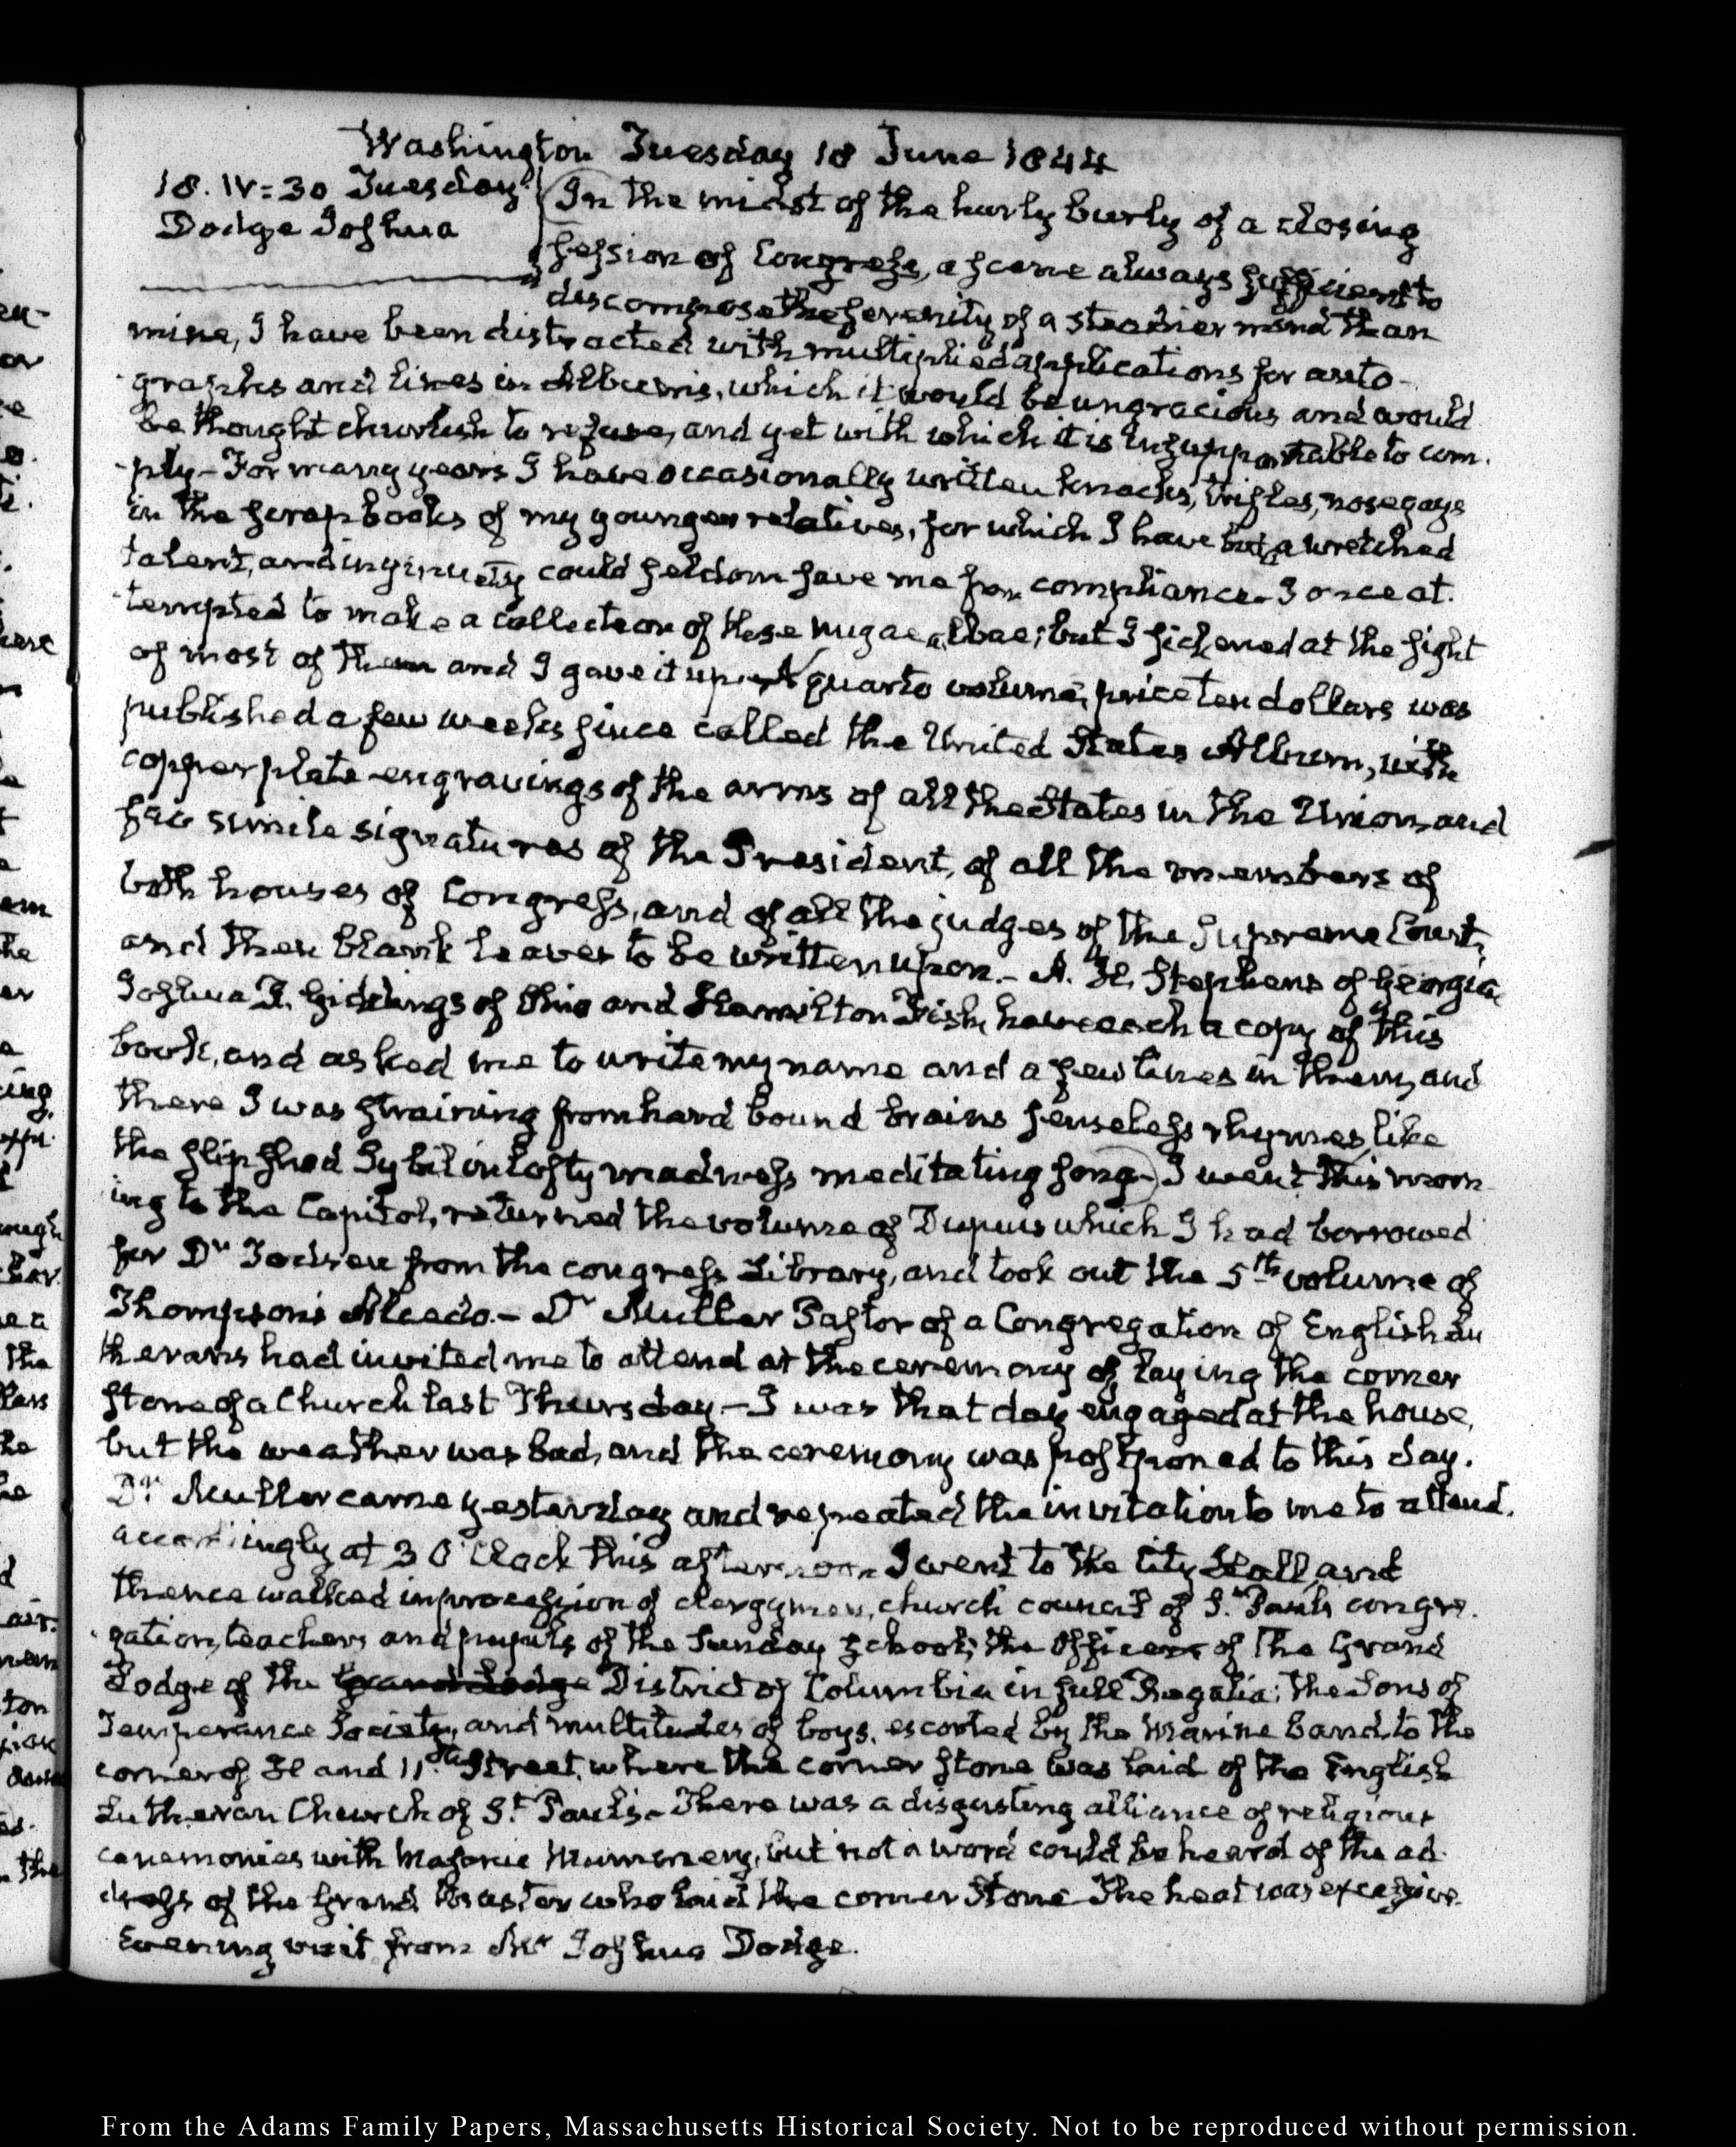 Washington Tuesday 18 June 1844
18. IV=30 Tuesday
Dodge Joshua
In the midst of the hurly burly of a closing
session of Congress, a scene always sufficient to
discompose the serenity of a steadier mind than
mine, I have been distracted with multiplied applications for auto-
graphs and lines in Albums, which it would be ungracious and would
be thought churlish to refuse, and yet with which it is insupportable to com-
-ply - For many years I have occasionally written knacks, trifles, nosegays
in the scrap books of my younger relatives, for which I have but a wretched
talent, and ingenuity could seldom save me from compliance. I once at-
-tempted to make a collection of these nugae albae; but I sickened at the sight
of most of them and I gave it up. A quarto volume, price ten dollars was
published a few weeks since called the United States Album, with
copperplate engravings of the arms of all the States in the Union, and
fac simile signatures of the President, of all the members of
both houses of Congress, and of all the judges of the Supreme Court,
and then blank leaves to be written upon.- A. H. Stephens of Georgia
Joshua R. Giddings of Ohio and Hamilton Fish, have each a copy of this
book, and asked me to write my name and a few lines in them, and
there I was straining from hard bound brains senseless rhymes, like
the slip shod Sybil in lofty madness meditating song - I went this morn-
ing to the Capitol, returned the volume of Dupuis which I had borrowed
for Dr from the congress Library, and took out the 5th volume of
Thompson's Alcedo.- Dr Muller Pastor of a Congregation of English Lu
therans had invited me to attend at the ceremony of laying the corner
stone of a Church last Thursday - I was that day engaged at the house,
but the weather was bad, and the ceremony was postponed to this day.
Dr Muller came yesterday and repeated the invitation to me to attend.
accordingly at 3 O'Clock this afternoon I went to the City Hall, and
thence walked in procession of clergymen, church council of St Pauls congre-
-gation, teachers and pupils of the Sunday school; the Officers of the Grand
Lodge of the Grand Lodge District of Columbia in full Regalia; the Sons of
Temperance Society, and multitudes of boys, escorted by the Marine band, to the
corner of H and 11th Street, where the corner stone was laid of the English
Lutheran Church of St Paul's - There was a disgusting alliance of religious
ceremonies with Masonic Mummery, but not a word could be heard of the ad-
dress of the Grand Master who laid the corner Stone - The heat was excessive
Evening visit from Mr Joshua Dodge.
From the Adams Family Papers, Massachusetts Historical Society. Not to be reproduced without permission.